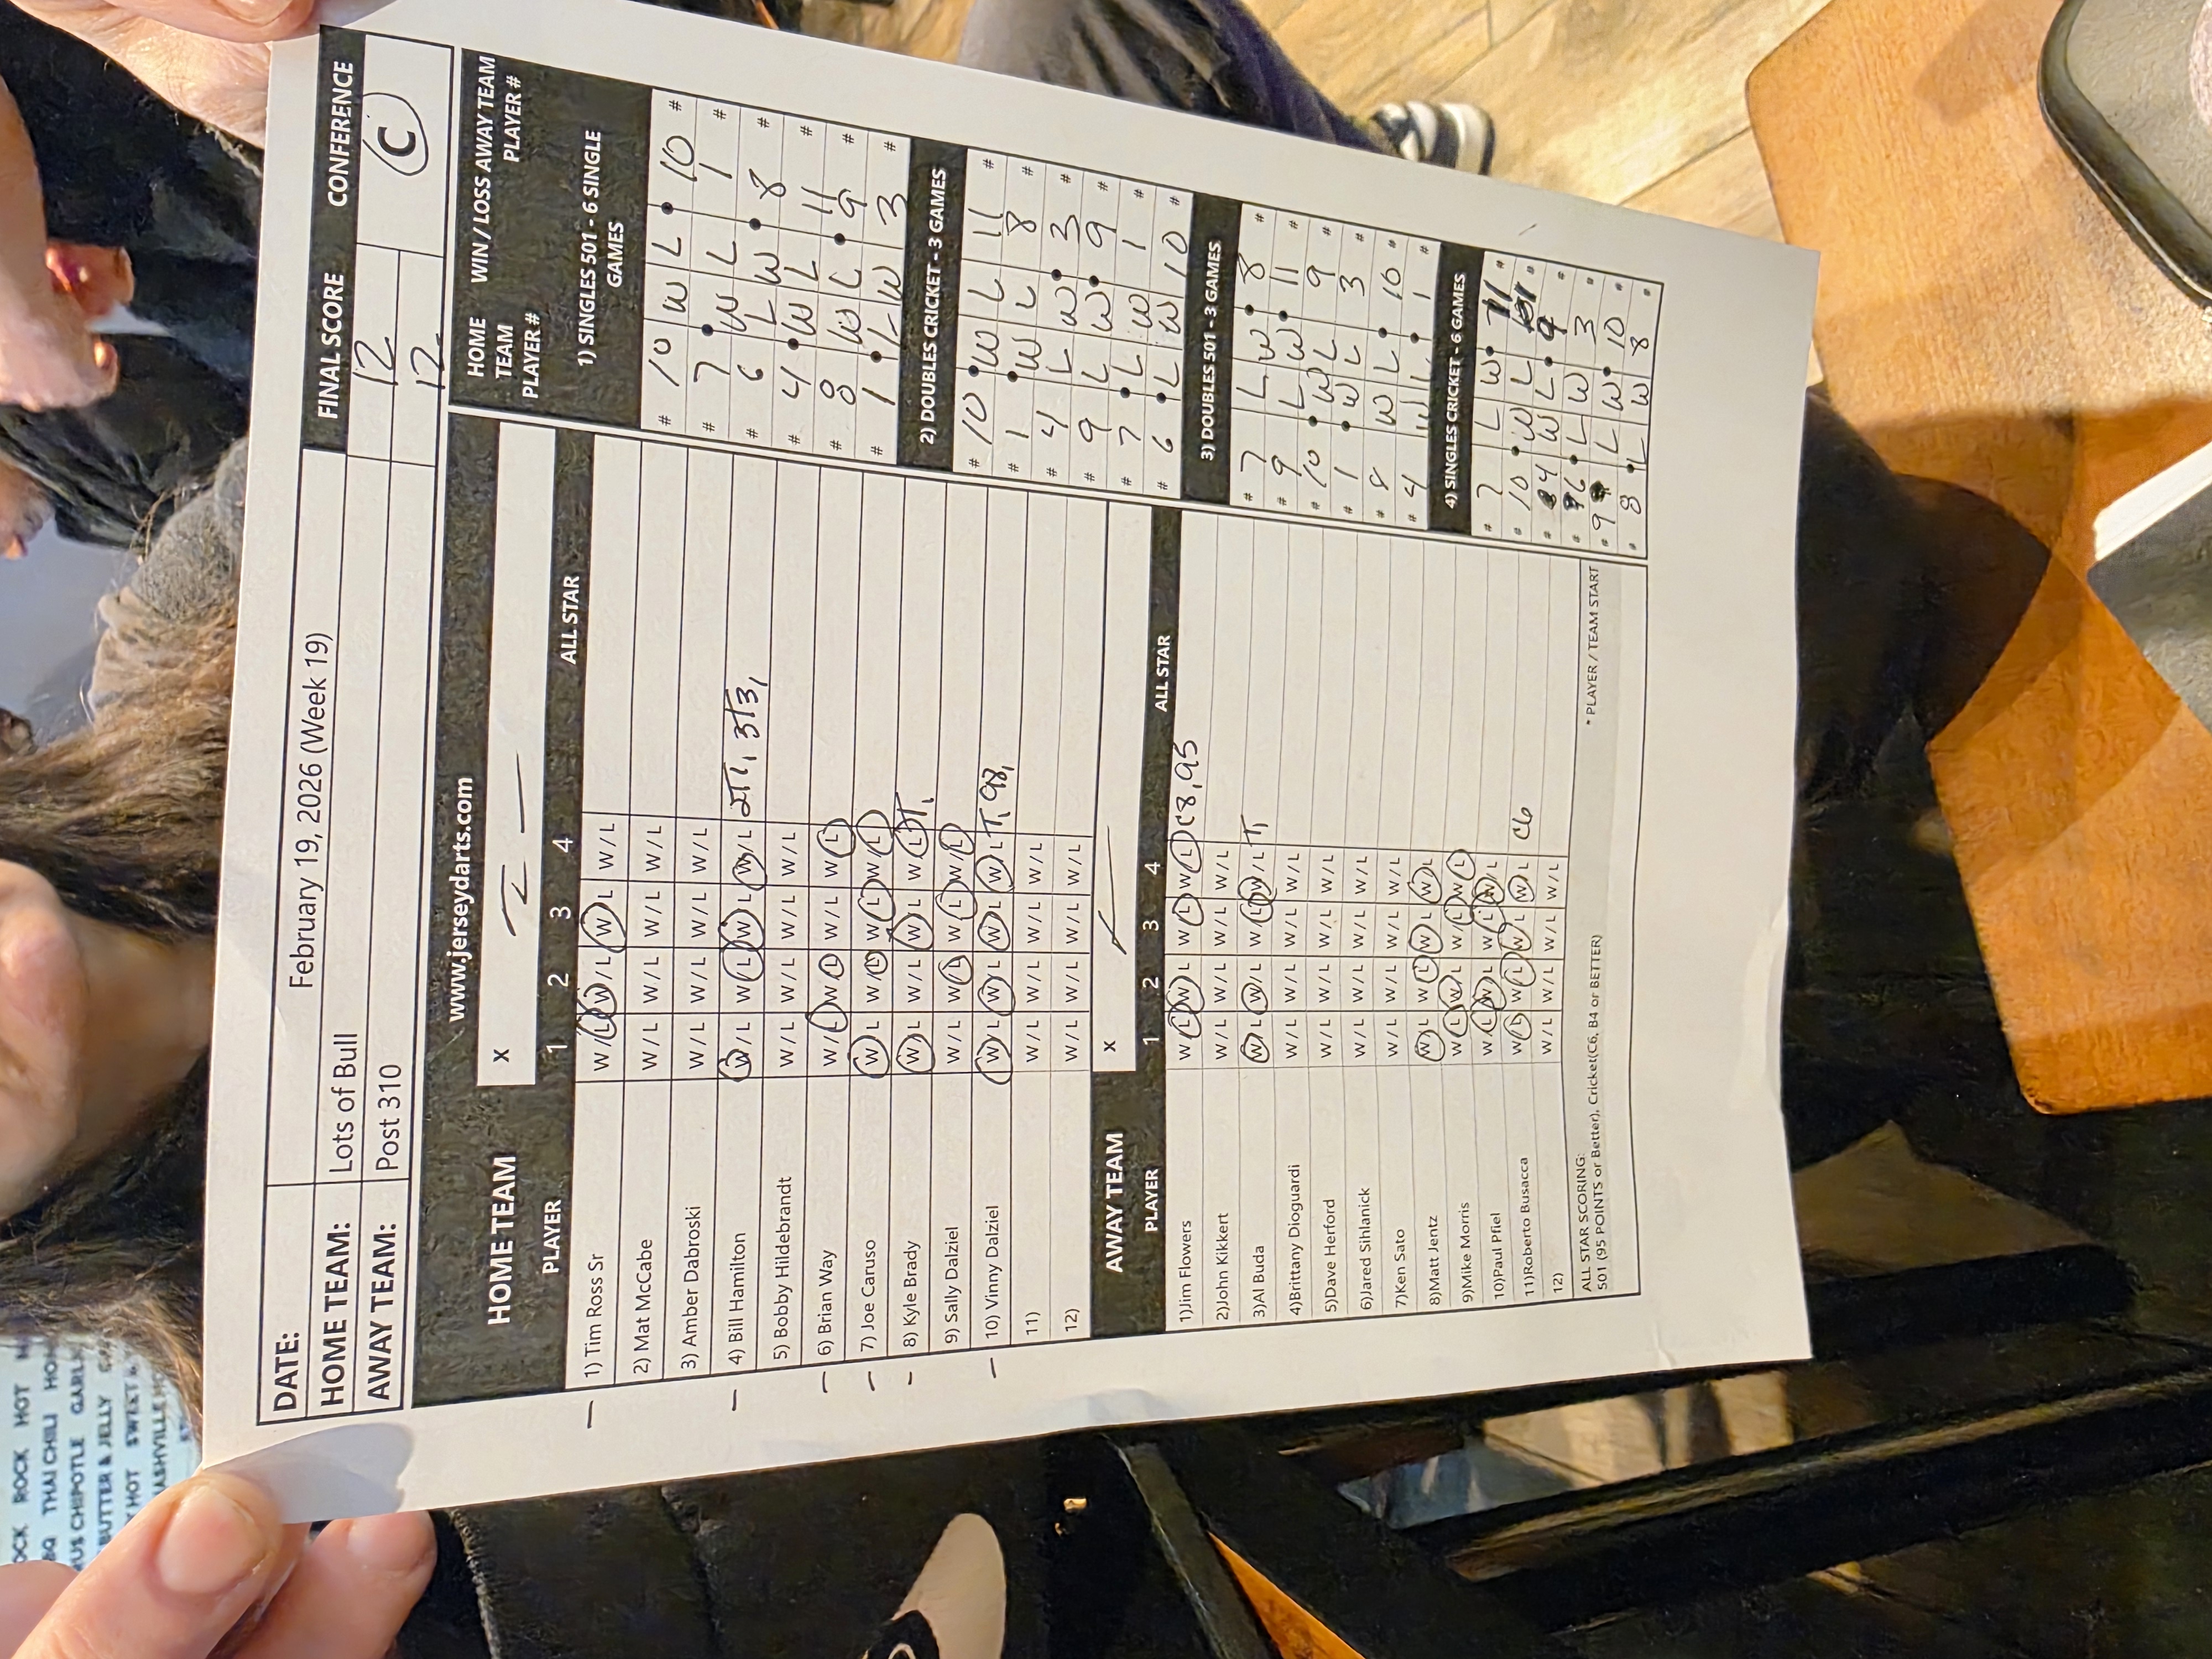 DATE: February 19, 2026 (Week 19) FINAL SCORE CONFERENCE
HOME TEAM: Lots of Bull 12 C
AWAY TEAM: Post 310 12
www.jerseydarts.com
HOME TEAM X
PLAYER 1 2 3 4 ALL STAR
1) Tim Ross Sr W / L W / L W / L W / L
2) Mat McCabe W / L W / L W / L W / L
3) Amber Dabroski W / L W / L W / L W / L
4) Bill Hamilton W / L W / L W / L W / L
5) Bobby Hildebrandt W / L W / L W / L W / L
6) Brian Way W / L W / L W / L W / L
7) Joe Caruso W / L W / L W / L W / L
8) Kyle Brady W / L W / L W / L W / L T,
9) Sally Dalziel W / L W / L W / L W / L
10) Vinny Dalziel W / L W / L W / L W / L T, 98,
11) W / L W / L W / L W / L
12) W / L W / L W / L W / L
AWAY TEAM X
PLAYER 1 2 3 4 ALL STAR
1)Jim Flowers W / L W / L W / L W / L C8, 95
2)John Kikkert W / L W / L W / L W / L
3)Al Buda W / L W / L W / L W / L T,
4)Brittany Dioguardi W / L W / L W / L W / L
5)Dave Herford W / L W / L W / L W / L
6)Jared Sihlanick W / L W / L W / L W / L
7)Ken Sato W / L W / L W / L W / L
8)Matt Jentz W / L W / L W / L W / L
9)Mike Morris W / L W / L W / L W / L
10)Paul Pfiel W / L W / L W / L W / L
11)Roberto Busacca W / L W / L W / L W / L C6
12) W / L W / L W / L W / L
ALL STAR SCORING:
501 (95 POINTS or Better), Cricket(C6, B4 or BETTER)
* PLAYER / TEAM START
HOME TEAM PLAYER # WIN / LOSS AWAY TEAM PLAYER #
1) SINGLES 501 - 6 SINGLE GAMES
# 10 W L 10 #
# 7 W L 1 #
# 6 L W 8 #
# 4 W L 11 #
# 8 W L 9 #
# 1 L W 3 #
2) DOUBLES CRICKET - 3 GAMES
# 10 W L 11 #
# 1 W L 8 #
# 4 L W 3 #
# 9 L W 9 #
# 7 L W 1 #
# 6 L W 10 #
3) DOUBLES 501 - 3 GAMES
# 7 L W 8 #
# 9 L W 11 #
# 10 W L 9 #
# 1 W L 3 #
# 8 W L 10 #
# 4 W L 1 #
4) SINGLES CRICKET - 6 GAMES
# 7 L W 11 #
# 10 W L 1 #
# 4 W L 9 #
# 6 L W 3 #
# 9 L W 10 #
# 8 L W 8 #
ROCK HOT
THAI CHILI
CHIPOTLE
BUTTER & JELLY